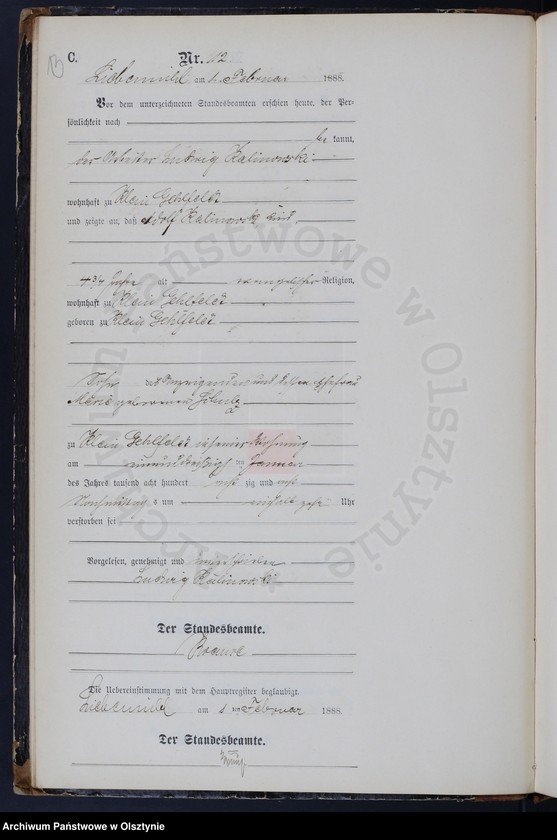 13
C.
Nr. 12
Liebemühl am 1. Februar 1888.
Vor dem unterzeichneten Standesbeamten erschien heute, der Per-
sönlichkeit nach
be kannt,
der Arbeiter Ludwig Kalinowski
wohnhaft zu Klein Gehlfeldt
und zeigte an, daß Adolf Kalinowski, Kind,
4 3/4 Jahre alt evangelischer Religion,
wohnhaft zu Klein Gehlfeldt
geboren zu Klein Gehlfeldt
Sohn des Anzeigenden und dessen Ehefrau
Marie geborenen Schulz
zu Klein Gehlfeldt in seiner Wohnung
am einunddreißigsten Januar
des Jahres tausend acht hundert acht zig und acht
Nachmittags um Uhr
verstorben sei
Vorgelesen, genehmigt und unterschrieben
Ludwig Kalinowski
Der Standesbeamte.
Die Uebereinstimmung mit dem Hauptregister beglaubigt.
Liebemühl am 1 ten Februar 1888.
Der Standesbeamte.
Archiwum Państwowe w Olsztynie
Archiwum Państwowe w Olsztynie